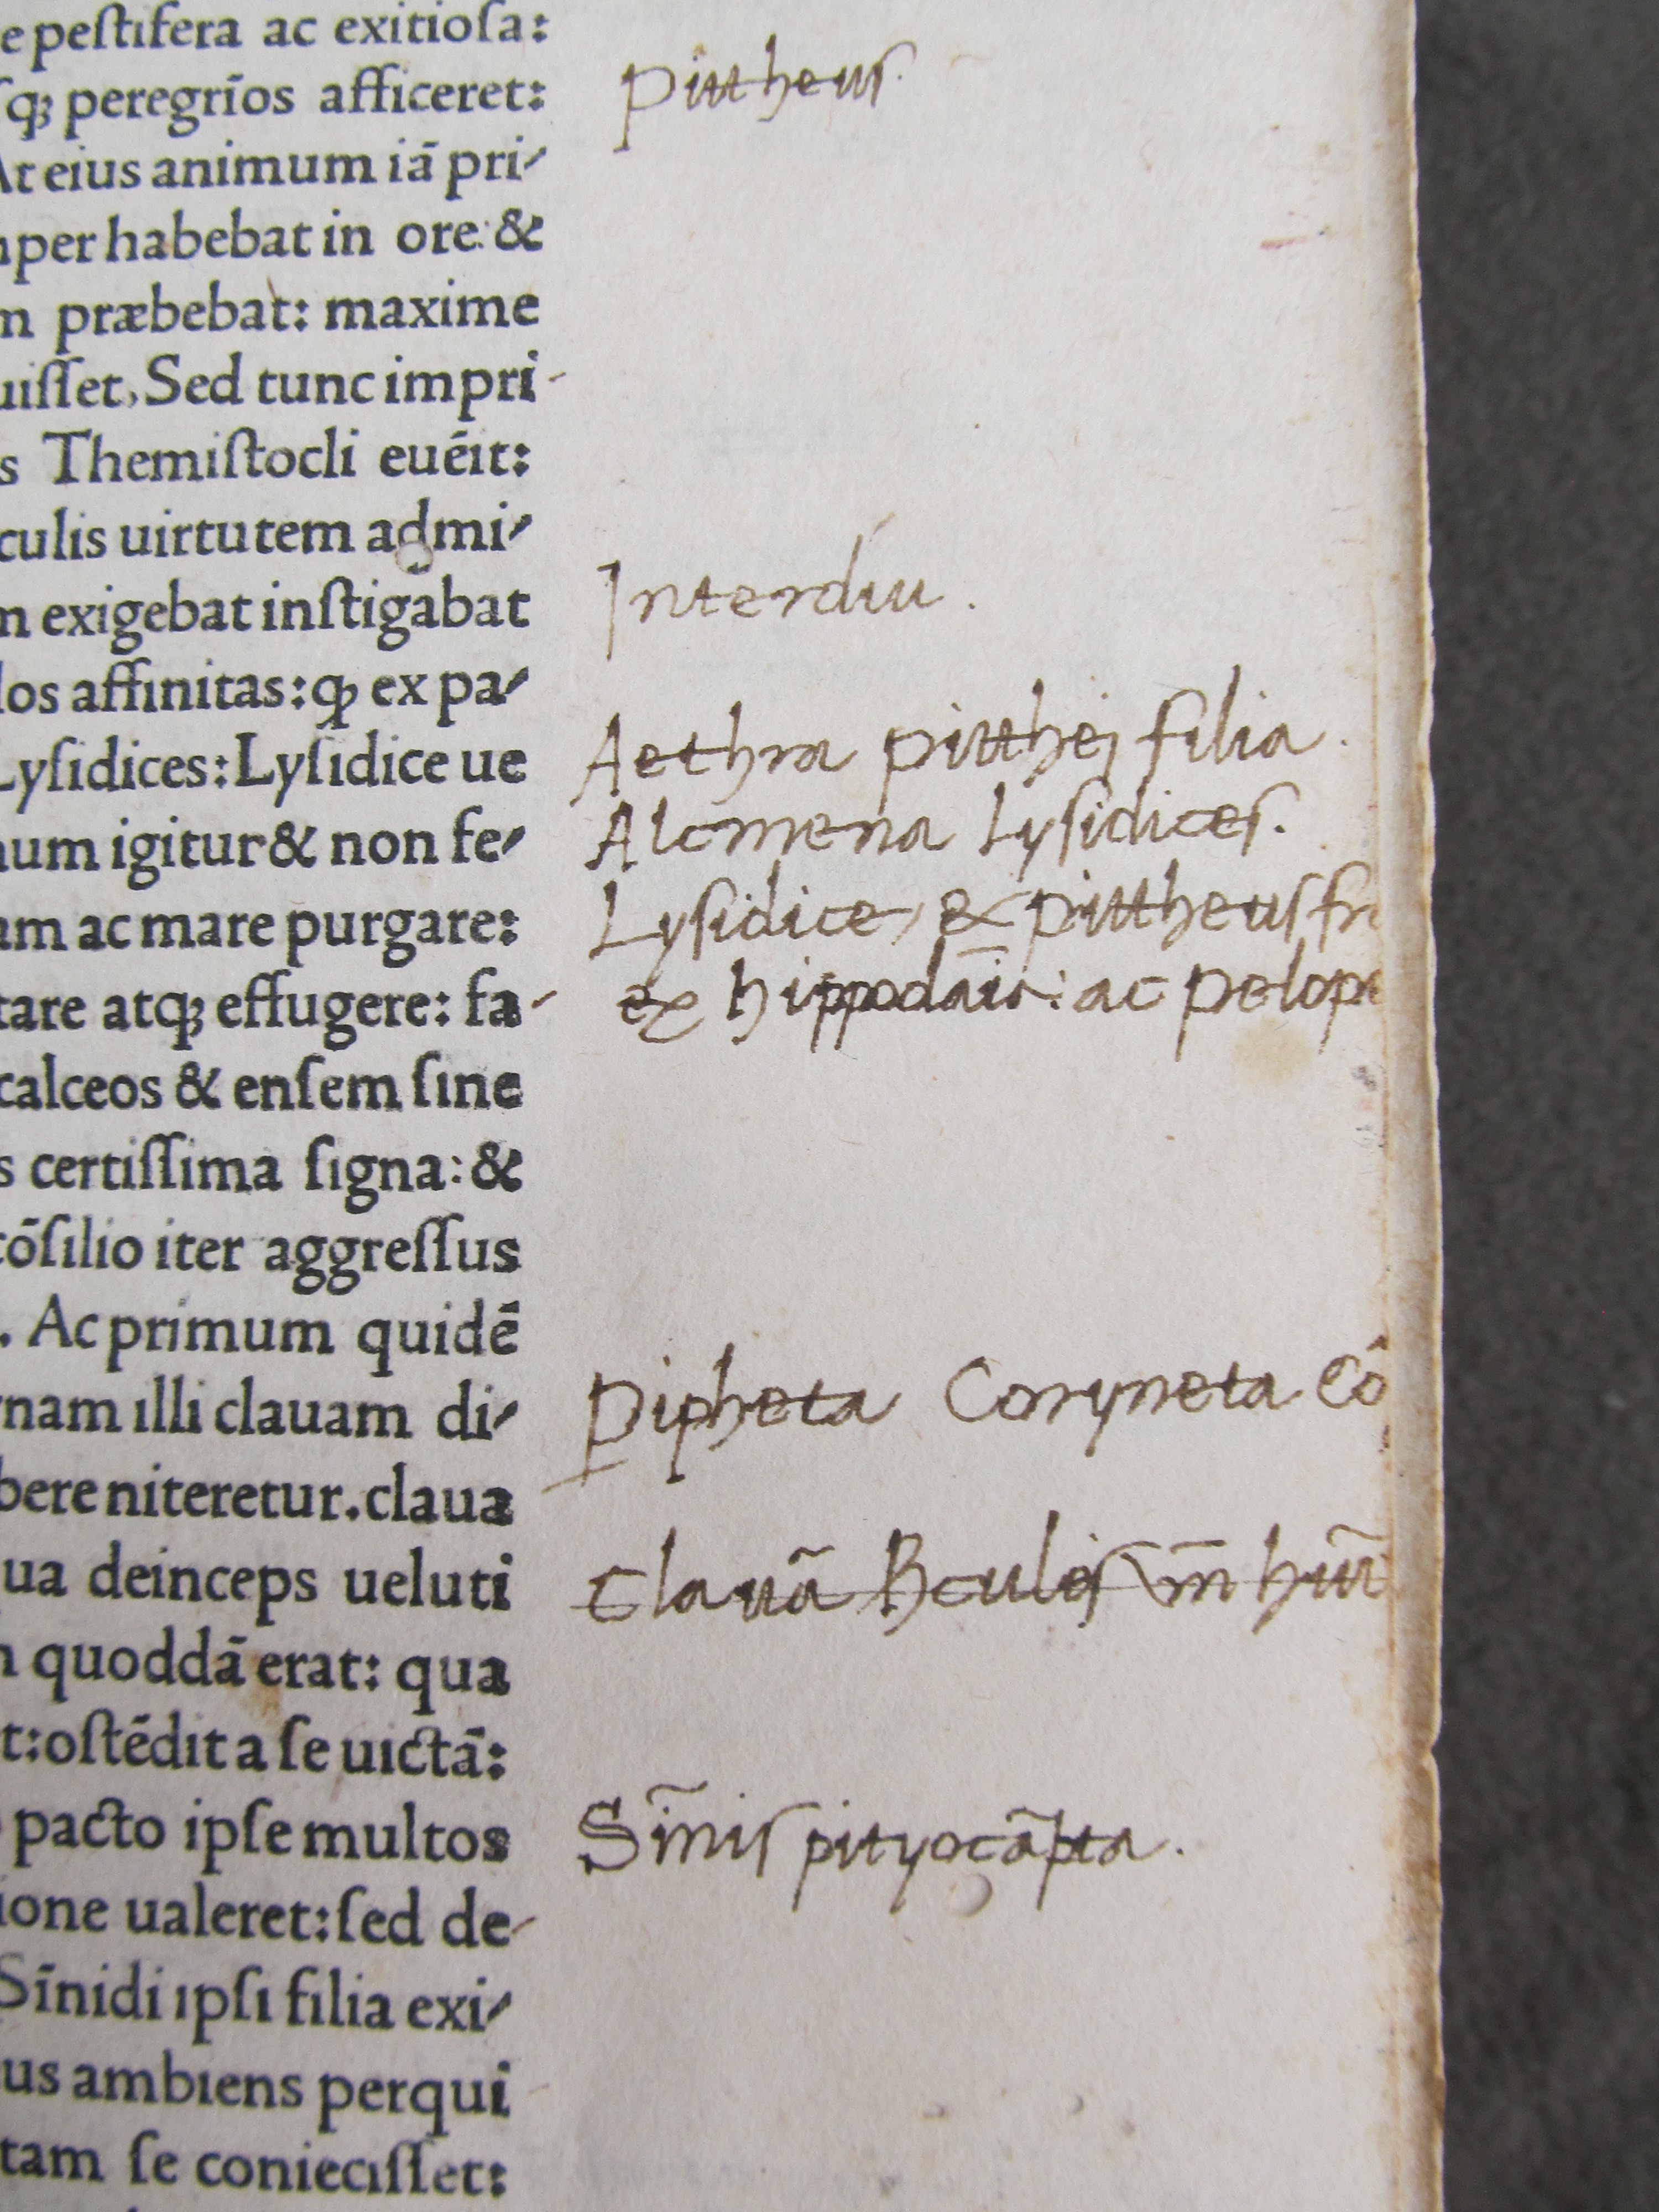 e pestifera ac exitiosa:
sqꝫ peregrīos afficeret:
At eius animum iā pri-
nper habebat in ore: &
m præbebat: maxime
uisset, Sed tunc impri-
s Themistocli euēit:
culis uirtutem admi-
m exigebat instigabat
los affinitas: ꝙ ex pa-
Lysidices: Lysidice ue
num igitur & non fe-
am ac mare purgare:
tare atqꝫ effugere: fa-
calceos & ensem sine
s certissima signa: &
cōsilio iter aggressus
. Ac primum quidē
rnam illi clauam di-
bere niteretur. claua
ua deinceps ueluti
n quoddā erat: qua
t: ostēdit a se uictā:
pacto ipse multos
ione ualeret: sed de-
Sīnidi ipsi filia exi-
us ambiens perqui
tam se coniecisset:
Pittheus.
Interdiu.
Aethra pitthej filia.
Alcmena Lysidices.
Lysidice, & pittheus fr
ex hippodāia: ac pelope
Pipheta Coryneta Cō
Clauā
Sīnis pityocāpta.